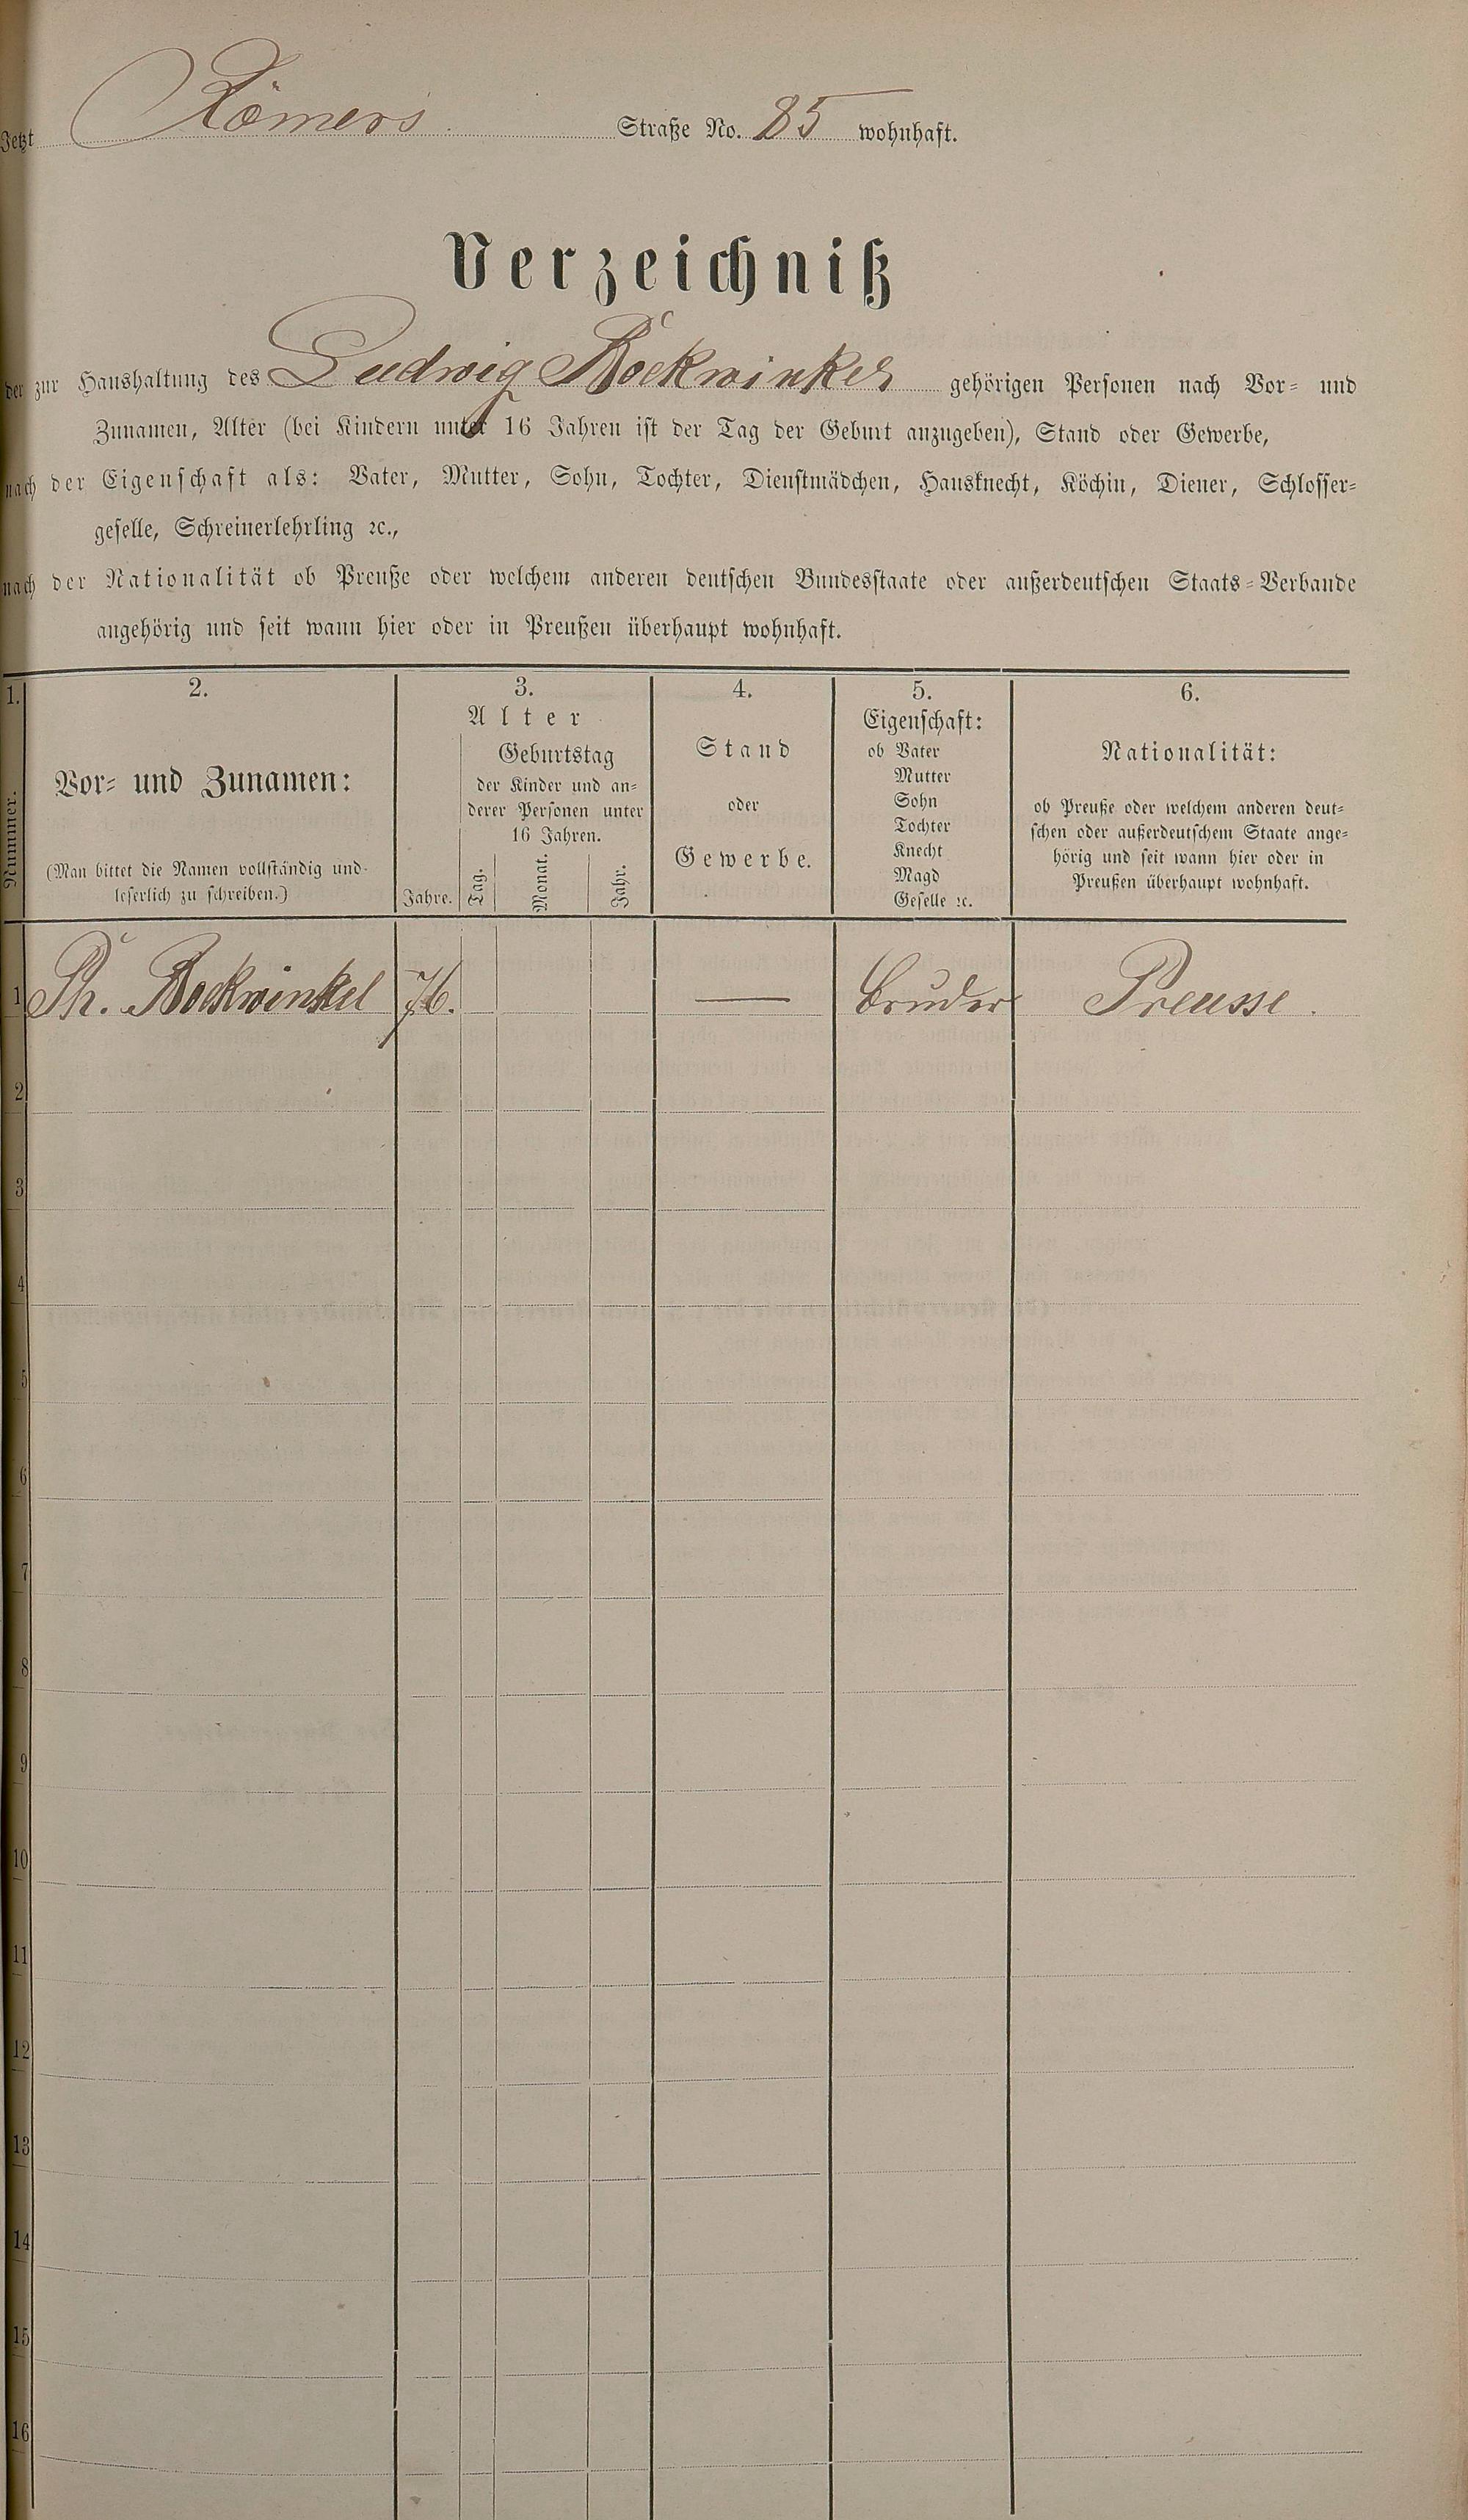 Jetzt Römers Straße No. 85 wohnhaft.
Verzeichniß
der zur Haushaltung des Ludwig Bockwinkel gehörigen Personen nach Vor- und
Zunamen, Alter (bei Kindern unter 16 Jahren ist der Tag der Geburt anzugeben), Stand oder Gewerbe,
nach der Eigenschaft als: Vater, Mutter, Sohn, Tochter, Dienstmädchen, Hausknecht, Köchin, Diener, Schlosser-
geselle, Schreinerlehrling ꝛc.,
nach der Nationalität ob Preuße oder welchem anderen deutschen Bundesstaate oder außerdeutschen Staats-Verbande
angehörig und seit wann hier oder in Preußen überhaupt wohnhaft.
1.
Nummer.
2.
Vor- und Zunamen:
(Man bittet die Namen vollständig und
leserlich zu schreiben.)
3.
Alter
Jahre.
Geburtstag
der Kinder und an-
derer Personen unter
16 Jahren.
Tag.
Monat.
Jahr.
4.
Stand
oder
Gewerbe.
5.
Eigenschaft:
ob Vater
Mutter
Sohn
Tochter
Knecht
Magd
Geselle ꝛc.
6.
Nationalität:
ob Preuße oder welchem anderen deut-
schen oder außerdeutschem Staate ange-
hörig und seit wann hier oder in
Preußen überhaupt wohnhaft.
1 Ph. Bockwinkel 76. — Bruder Preusse.
2
3
4
5
6
7
8
9
10
11
12
13
14
15
16